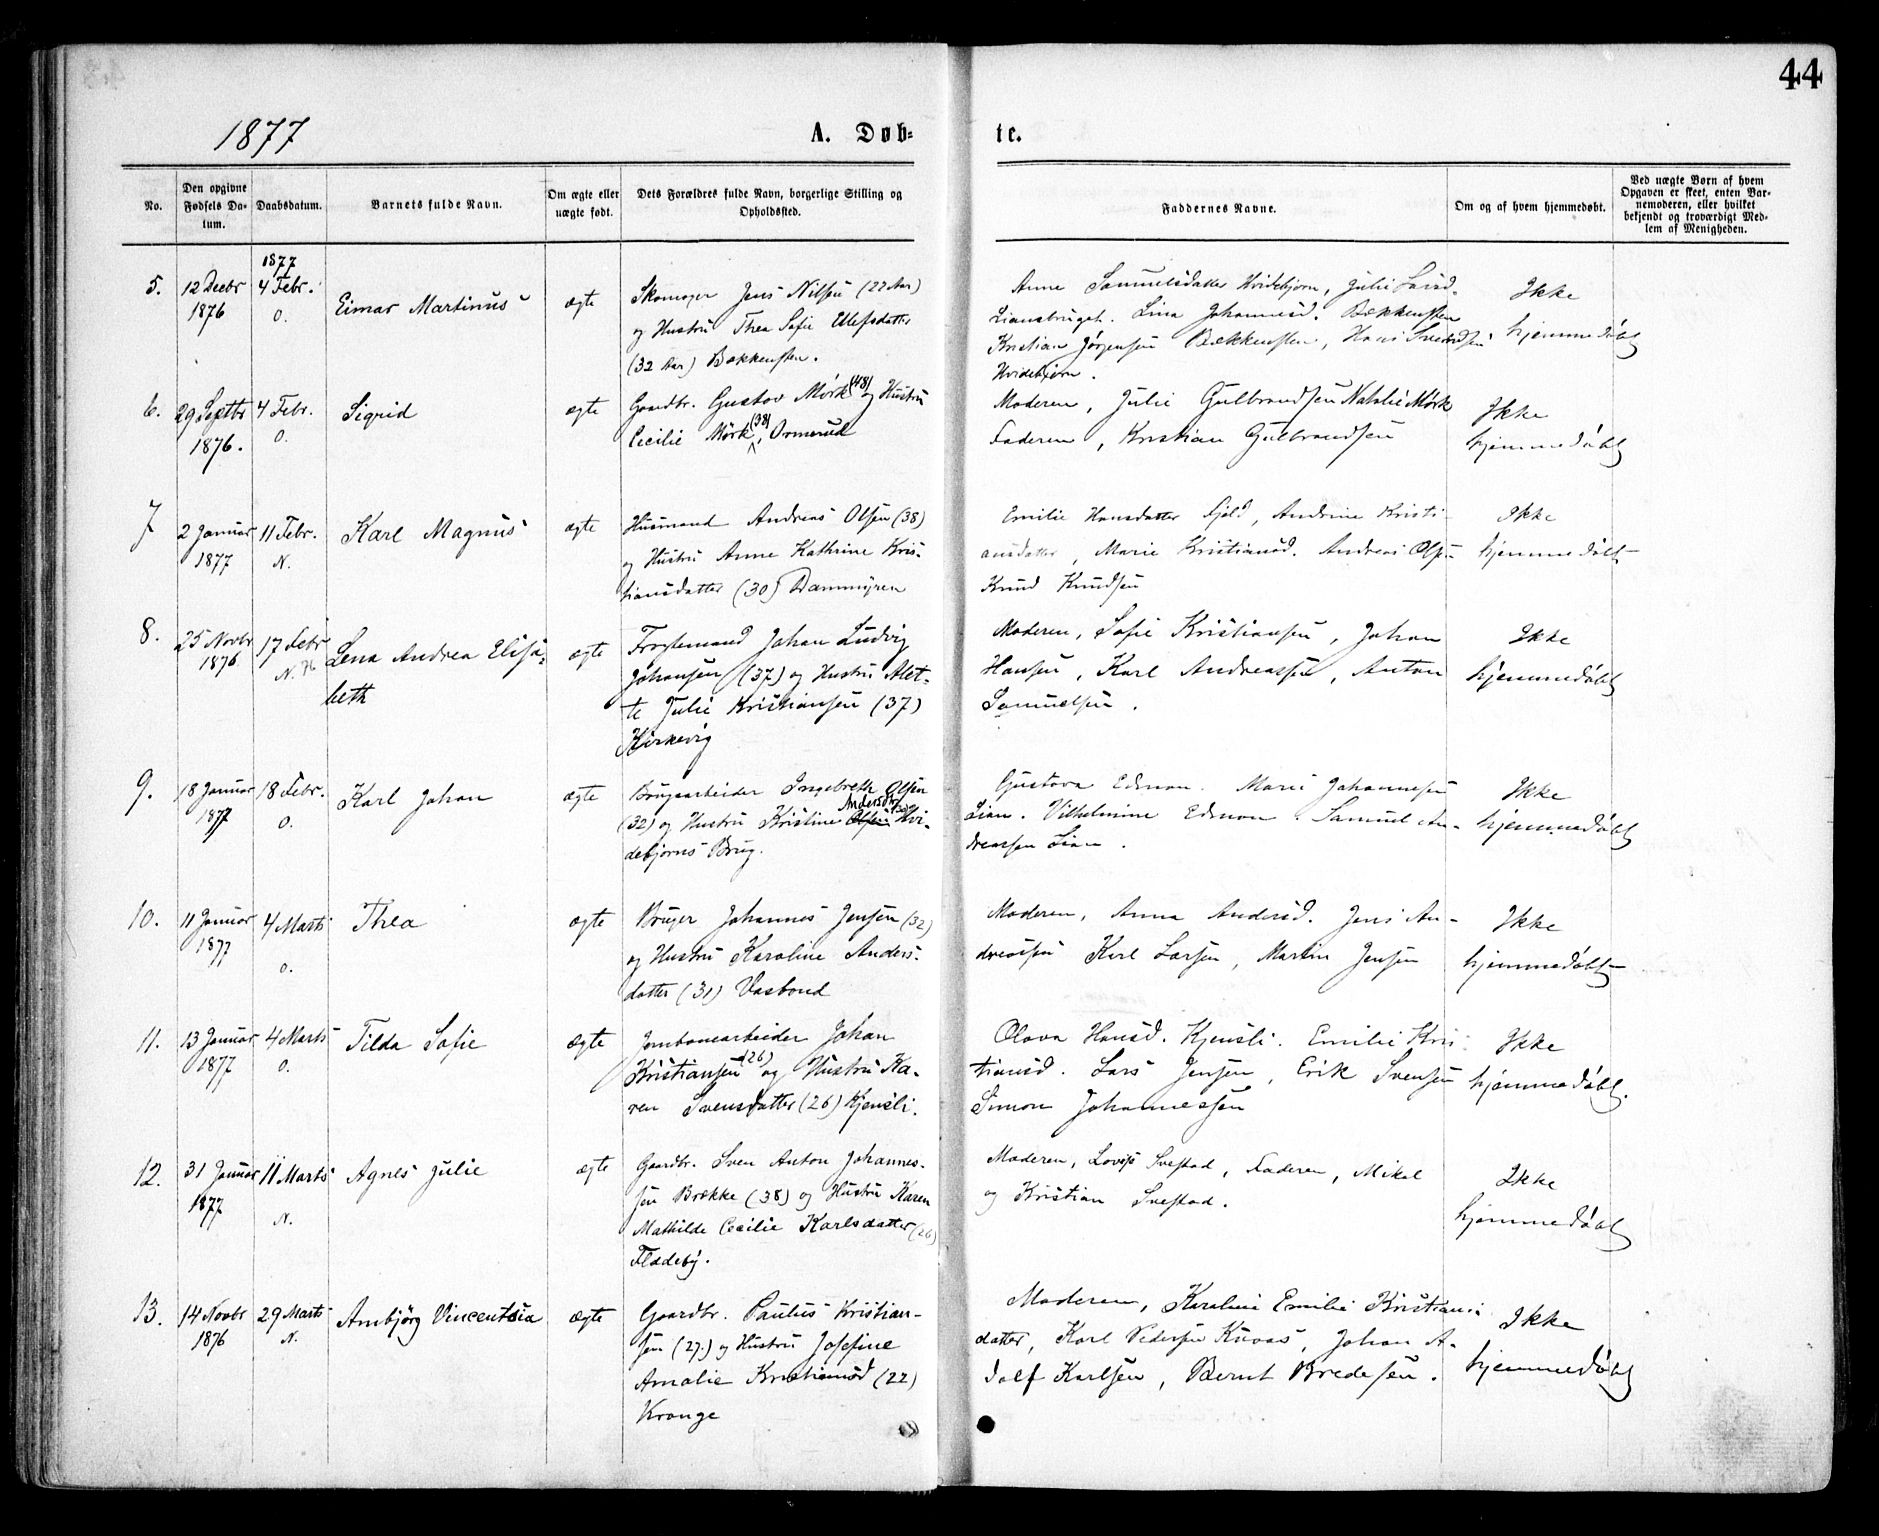 44
1877 A. Døb- te.
No.
Den opgivne Fødsels Datum.
Daabsdatum.
Barnets fulde Navn.
Om ægte eller uægte født.
Dets Forældres fulde Navn, borgerlige Stilling og Opholdssted.
Faddernes Navne.
Om og af hvem hjemmedøbt.
Ved uægte Børn af hvem Opgaven er skeet, enten Barnemoderen, eller hvilket bekjendt og troværdigt Medlem af Menigheden.
5.
12 Decbr
1876
1877
4 Febr.
O.
Einar Martinus
ægte
Skomager Jens Nilsen (22 Aar)
og Hustru Thea Sofie Ellefsdatter
(32 Aar) Bækkensten.
Anne Samuelsdatter Hvidebjørn, Julie Larsd.
Liansbruget. Lina Johannesd. Bækkensten
Kristian Jørgensen Bækkensten, Hans Svendsen
Hvidebjørn.
Ikke
hjemmedøbt
6.
29 Septbr
1876.
4 Febr.
O.
Sigrid
ægte
Gaardbr. Gustav Mørk (48) og Hustru
Cecilie Mørk (38), Ormerud
Moderen, Julie Gulbrandsen Natalie Mørk
Faderen, Kristian Gulbrandsen
Ikke
hjemmedøbt
7
2 Januar
1877
11 Febr.
N.
Karl Magnus
ægte
Husmand Andreas Olsen (38)
og Hustru Anne Kathrine Kris-
tiansdatter (30) Dammyren
Emilie Hansdatter Fjeld, Andrine Kristi-
ansdatter, Marie Kristiansd. Andreas Olsen
Knud Knudsen
Ikke
hjemmedøbt
8.
25 Novbr
1876
17 Febr
N.
Lena Andrea Elisa-
beth
ægte
Fragtemand Johan Ludvig
Johansen (37) og Hustru Alet-
te Julie Kristiansen (37)
Kirkevig
Moderen, Sofie Kristiansen, Johan
Hansen, Karl Andreassen, Anton
Samuelsen.
Ikke
hjemmedøbt
9.
18 Januar
1877
18 Febr.
O.
Karl Johan
ægte
Brugsarbeider Ingebreth Olsen
(32) og Hustru Kristine Andersdtr Olsen Hvi-
debjørns Brug.
Gustava Edmon. Marie Johannesen
Lian. Vilhelmine Edmon. Samuel An-
dreassen Lian.
Ikke
hjemmedøbt
10.
11 Januar
1877
4 Marts
O.
Thea
ægte
Bruger Johannes Jensen (32)
og Hustru Karoline Anders-
datter (31) Vasbond
Moderen, Anna Andersd. Jens An-
dreasen Karl Larsen, Martin Jensen
Ikke
hjemmedøbt
11.
13 Januar
1877
4 Marts
O.
Tilda Sofie
ægte
Jernbanearbeider Johan
Kristiansen (26) og Hustru Ka-
ren Svensdatter (26) Kjensli.
Olava Hansd. Kjensli. Emilie Kris-
tiansd. Lars Jensen, Erik Svensen
Simon Johannessen
Ikke
hjemmedøbt.
12.
31 Januar
1877
11 Marts
N.
Agnes Julie
ægte
Gaardbr. Sven Anton Johannes-
sen Brække (38) og Hustru Karen
Mathilde Cecilie Karlsdatter (26)
Fladeby.
Moderen, Lovise Svestad, Faderen, Mikal
og Kristian Svestad.
Ikke
hjemmedøbt
13.
14 Novbr
1876
29 Marts
N.
Anbjørg Vincentsia
ægte
Gaardbr. Paulus Kristian-
sen (27.) og Hustru Josefine
Amalie Kristiansd (22)
Krange
Moderen, Karoline Emilie Kristians-
datter, Karl Pedersen Knaas, Johan A-
dolf Karlsen, Bernt Bredesen.
Ikke
hjemmedøbt